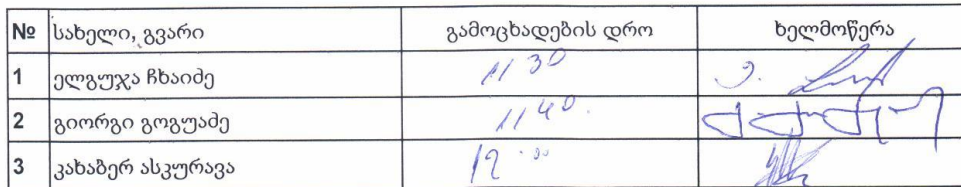 № სახელი, გვარი გამოცხადების დრო ხელმოწერა
1 ელგუჯა ჩხაიძე 11 30
2 გიორგი გოგუაძე 11 40.
3 კახაბერ ასკურავა 12.00